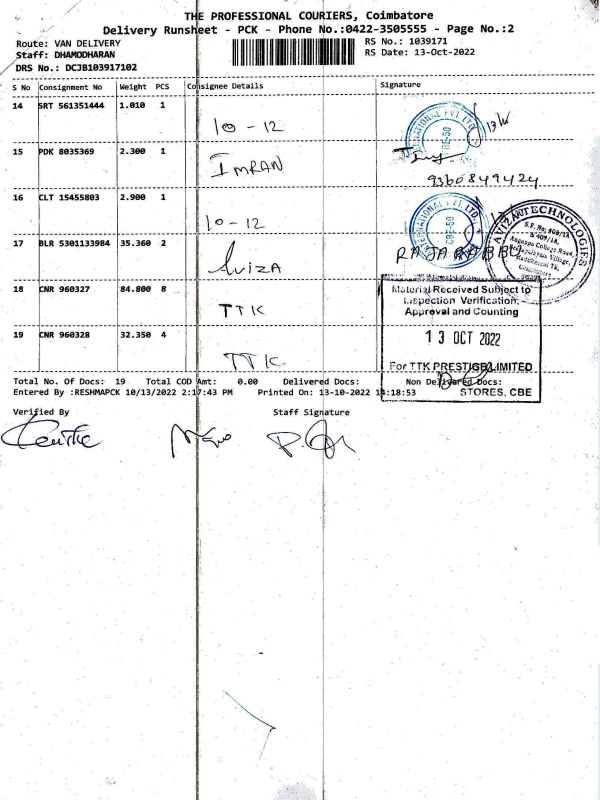 THE PROFESSIONAL COURIERS, Coimbatore
Delivery Runsheet - PCK - Phone No.:0422-3505555 - Page No.:2
Route: VAN DELIVERY
RS No.: 1039171
Staff: DHAMODHARAN
RS Date: 13-Oct-2022
DRS No.: DCJB103917102
S No Consignment No Weight PCS Consignee Details Signature
14 SRT 561351444 1.010 1 10-12
15 PDK 8035369 2.300 1 IMRAN 9360849424
16 CLT 15455803 2.900 1 10-12
17 BLR 5301133984 35.360 2 Aviza
18 CNR 960327 84.800 8 TTK
19 CNR 960328 32.350 4 TTK
AVIZA TECHNOLOGIES
S.F. No. 409/1A
& 407/1A,
Material Received Subject to
Inspection Verification,
Approval and Counting
13 OCT 2022
For TTK PRESTIGE LIMITED
STORES, CBE
Total No. Of Docs: 19 Total COD Amt: 0.00 Delivered Docs: Non Delivered Docs:
Entered By :RESHMAPCK 10/13/2022 2:17:43 PM Printed On: 13-10-2022 14:18:53
Verified By Staff Signature